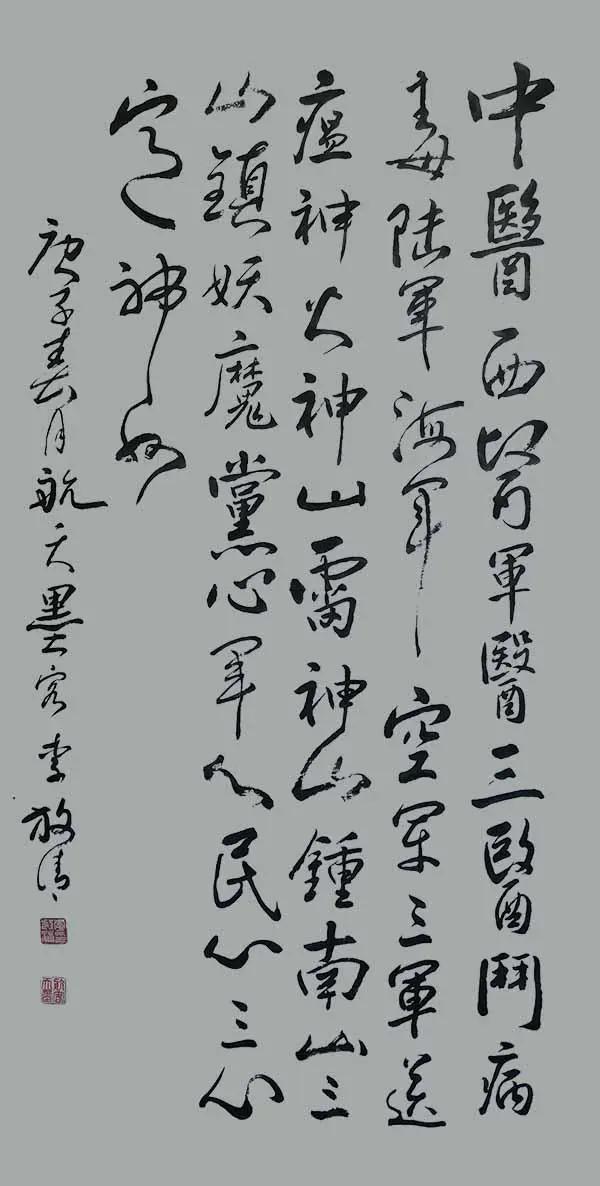 中醫西醫軍醫三醫鬥病
毒陸軍海軍空軍三軍送
瘟神火神山雷神山鍾南山三
山鎮妖魔黨心軍心民心三心
定神州
庚子春月航天墨客李放清